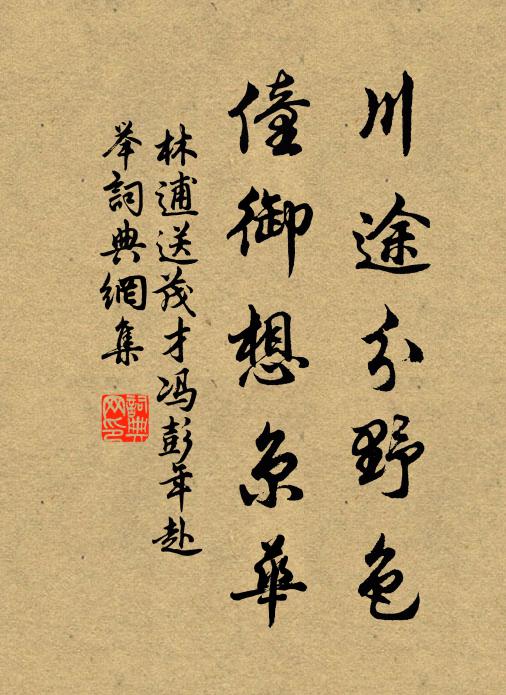 川途分野色
僮御想京華
林逋送茂才冯彭年赴
举詞典網集
詞典网印